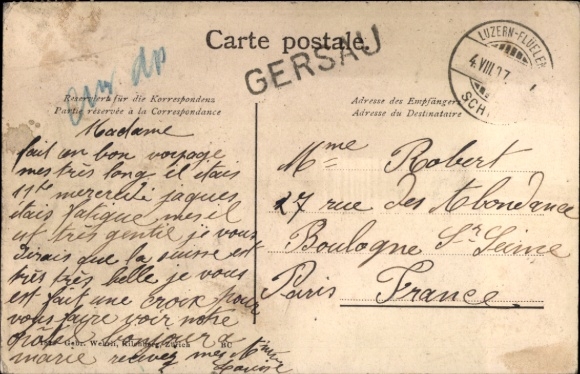 Carte postale.
GERSAU
LUZERN-FLÜELEN
4.VIII.07
SCH
Reserviert für die Korrespondenz
Partie réservée à la Correspondance
Adresse des Empfängers
Adresse du Destinataire
Madame
fait un bon voyage
mes très long il étais
11 h mercredi jaques
étais fatigue mes il
est très gentil je vous
dirais que la suisse est
très très belle je vous
est fait une croix pour
vous faire voir notre
marie recevez mes
Louise
Gebr. Wehrli, Kilchberg, Zürich
Mme Robert
27 rue des Abondance
Boulogne Sr Seine
Paris France